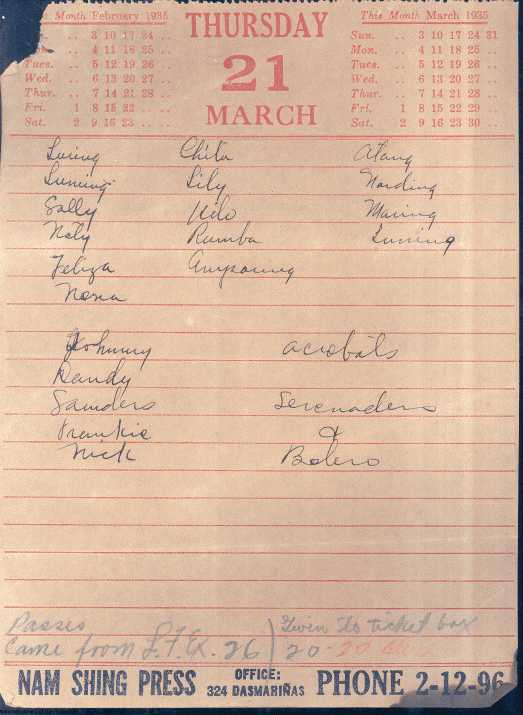 Month February 1935
THURSDAY
This Month March 1935
.. 3 10 17 24
Sun. .. 3 10 17 24 31
.. 4 11 18 25 ..
Mon. .. 4 11 18 25 ..
Tues. .. 5 12 19 26
21
Tues. .. 5 12 19 26 ..
Wed. .. 6 13 20 27
Wed. .. 6 13 20 27 ..
Thur. .. 7 14 21 28
Thur. .. 7 14 21 28 ..
Fri. 1 8 15 22 ..
MARCH
Fri. 1 8 15 22 29 ..
Sat. 2 9 16 23 ..
Sat. 2 9 16 23 30 ..
Luring Chita Atang
Luming Lily Narding
Sally Kilo Maring
Naty Rumba Luning
Feliza
Nora
Johnny acrobats
Dandy
Saunders Serenaders
Frankie &
Nick Bolero
Passes
Given to ticket box
Came from S.F.Ex. 26
20 - 20
NAM SHING PRESS OFFICE: 324 DASMARIÑAS PHONE 2-12-96